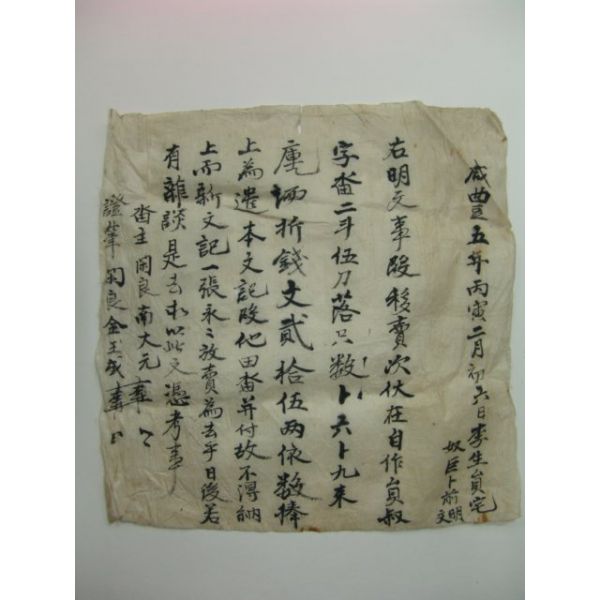 咸豊五年丙寅二月初六日李生員宅
奴巨卜前明
文
右明文事段移賣次伏在自作員叔
字畓二斗伍刀落只数卜六卜九束
廛価折錢文貳拾伍両依数捧
上為遣本文記段他田畓并付故不得納
上而新文記一張永永放賣為去乎日後若
有雜談是去木以此文憑考事
畓主閑良南大元
證筆閑良金